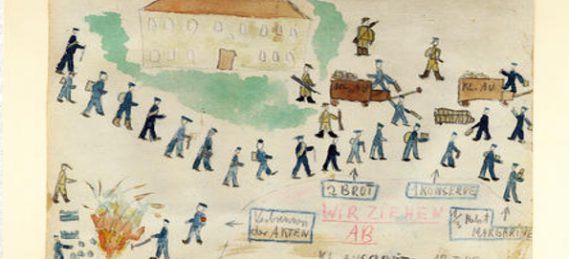 KL. AU.
KL. AU.
2 BROT
1 KONSERVE
Verbrennen
der AKTEN
WIR ZIEHEN
AB
1/2 Paket
MARGARINE